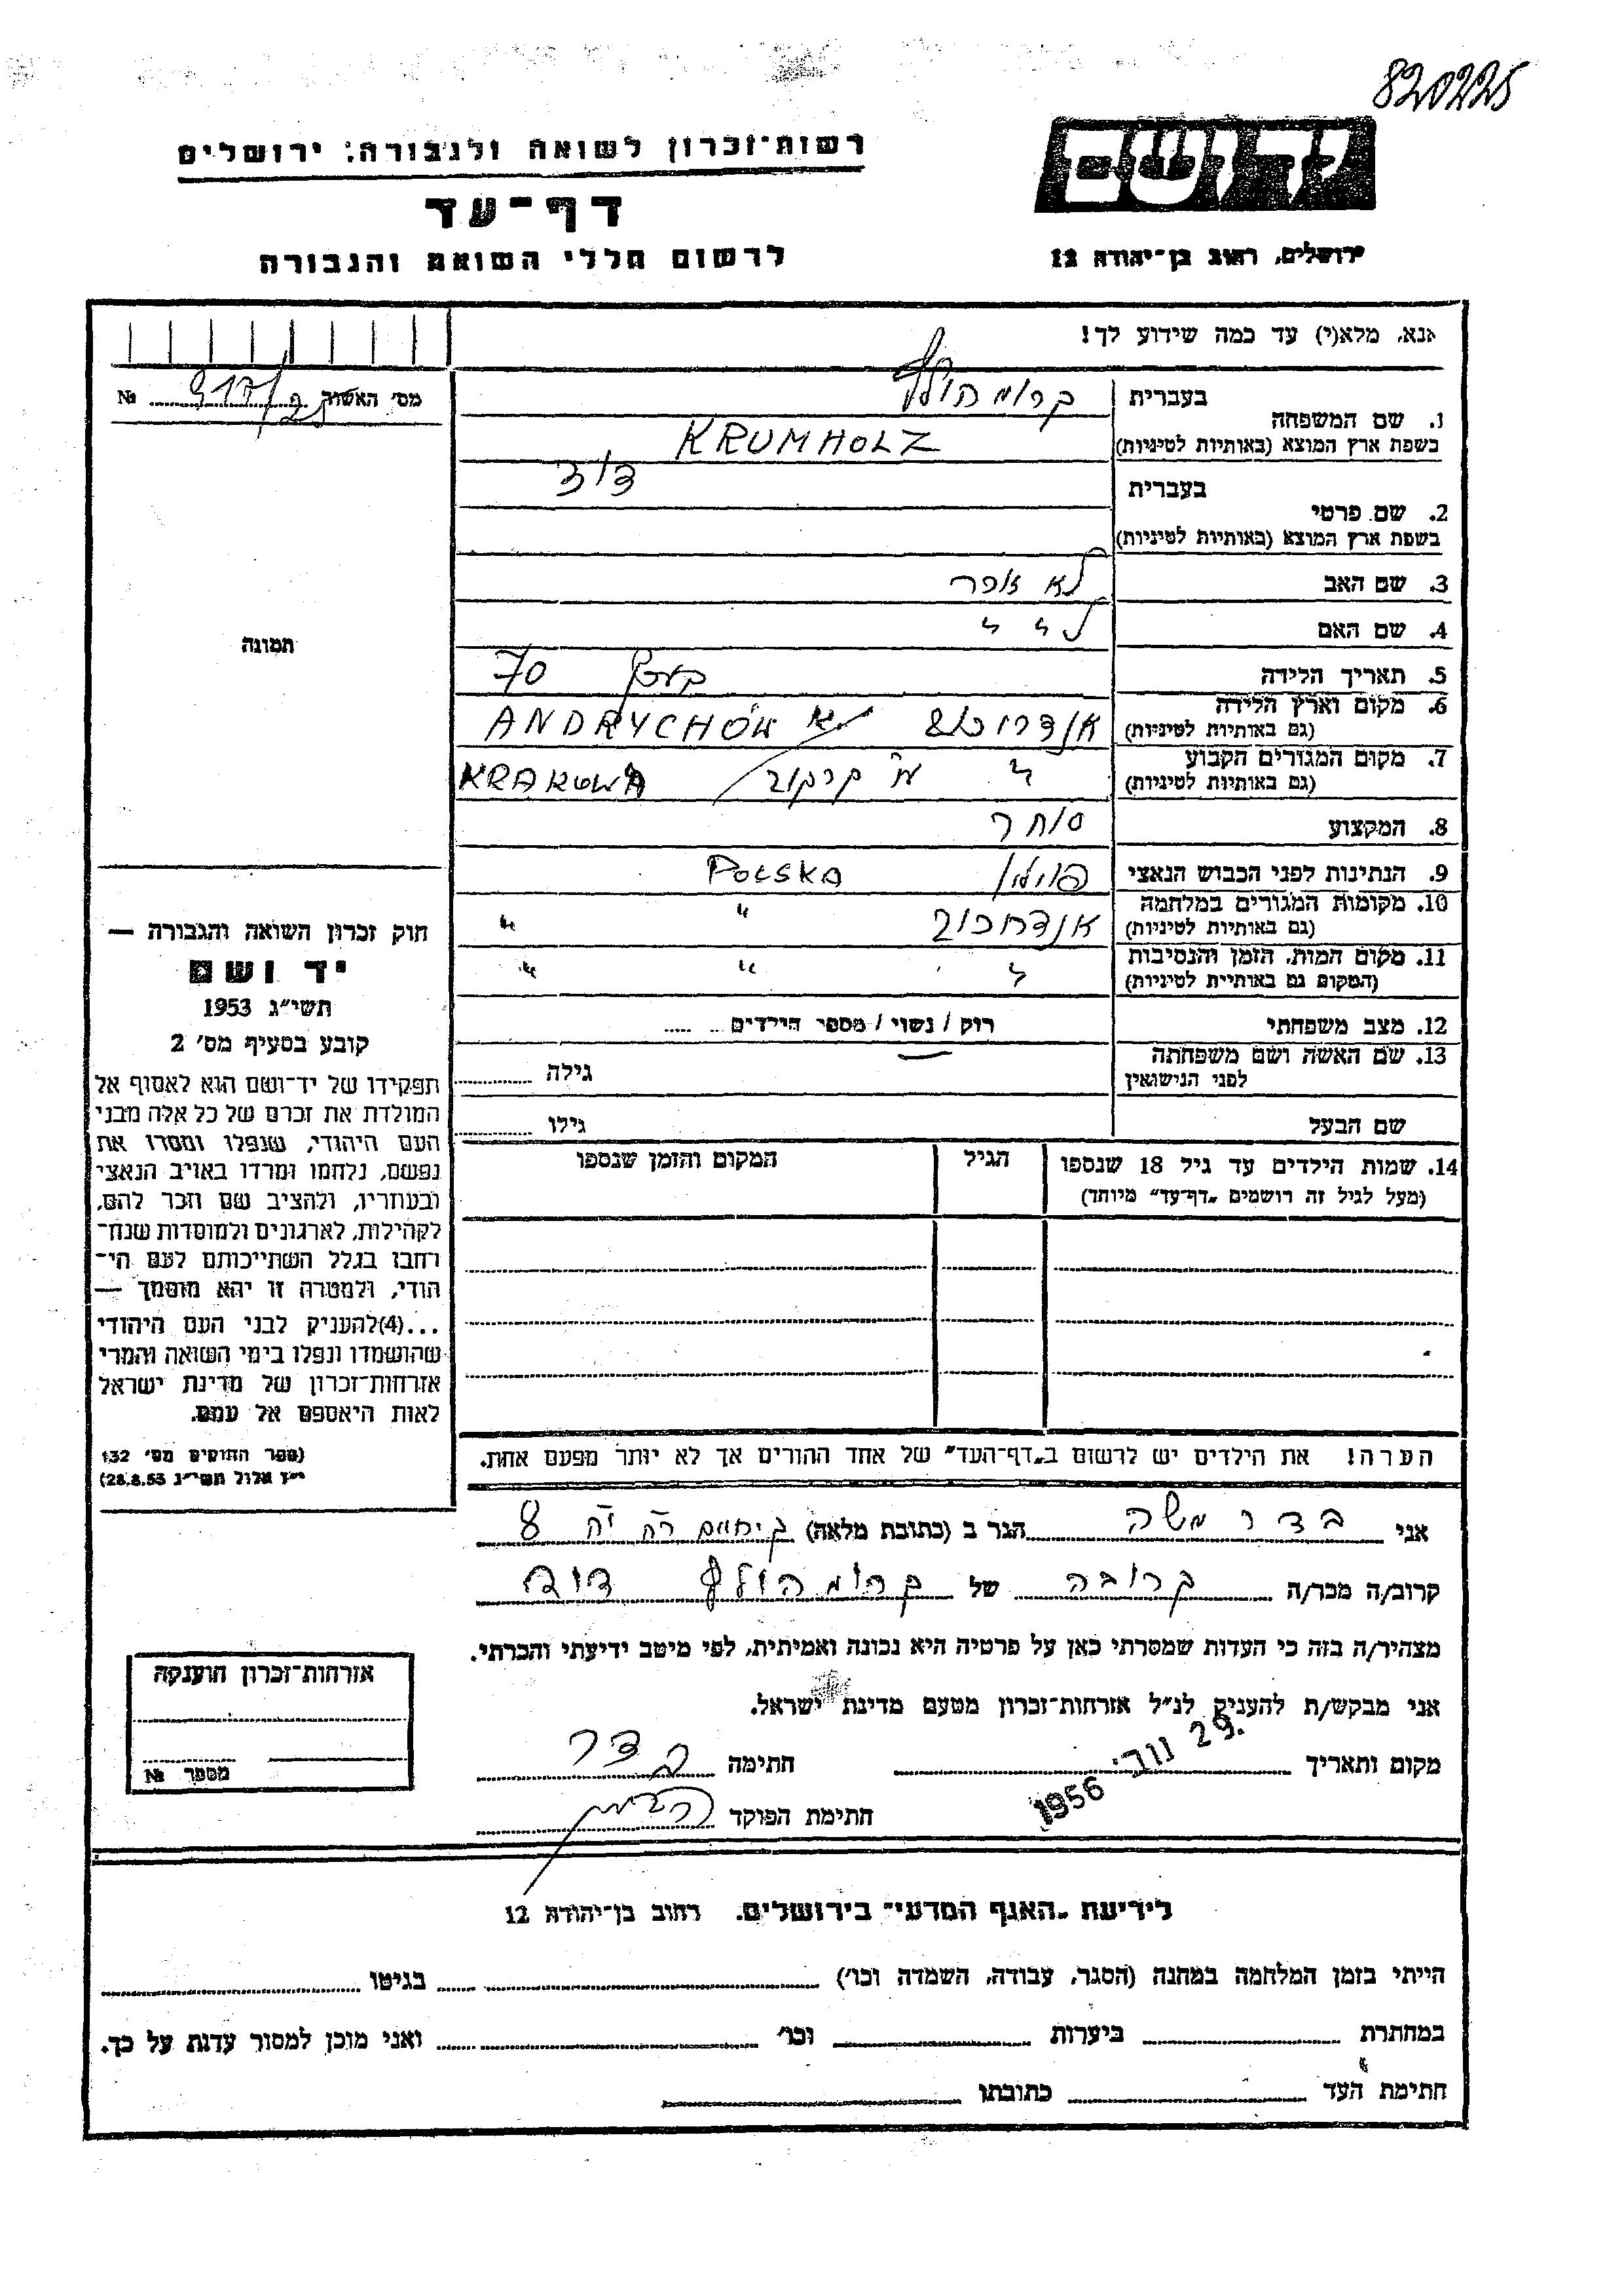 820225
יד ושם
ירושלים, רחוב בן־יהודה 12
רשות־זכרון לשואה ולגבורה, ירושלים
דף־עד
לרשום חללי השואה והגבורה
אנא, מלא(י) עד כמה שידוע לך!
מס' האשוה 917/25 №
תמונה
1. שם המשפחה
בעברית קרומהולץ
בשפת ארץ המוצא (באותיות לטיניות) KRUMHOLZ
2. שם פרטי
בעברית דוד
בשפת ארץ המוצא (באותיות לטיניות)
3. שם האב לא זוכר
4. שם האם ל " "
5. תאריך הלידה בערך 70
6. מקום וארץ הלידה
(גם באותיות לטיניות) ANDRYCHÓW
7. מקום המגורים הקבוע
(גם באותיות לטיניות) " ע"י קרקוב KRAKOWA
8. המקצוע סוחר
9. הנתינות לפני הכבוש הנאצי פולין POLSKA
10. מקומות המגורים במלחמה
(גם באותיות לטיניות) " "
11. מקום המות, הזמן והנסיבות
(המקום גם באותיות לטיניות) " " "
12. מצב משפחתי רוק / נשוי / מספר הילדים
13. שם האשה ושם משפחתה
לפני הנישואין גילה
שם הבעל גילו
14. שמות הילדים עד גיל 18 שנספו הגיל המקום והזמן שנספו
(מעל לגיל זה רושמים „דף־עד" מיוחד)
הערה! את הילדים יש לרשום ב„דף־העד" של אחד ההורים אך לא יותר מפעם אחת.
חוק זכרון השואה והגבורה —
יד ושם
תשי"ג 1953
קובע בסעיף מס' 2
תפקידו של יד־ושם הוא לאסוף אל
המולדת את זכרם של כל אלה מבני
העם היהודי, שנפלו ומסרו את
נפשם, נלחמו ומרדו באויב הנאצי
ובעוזריו, ולהציב שם וזכר להם,
לקהילות, לארגונים ולמוסדות שנח־
רחבו בגלל השתייכותם לעם הי־
הודי, ולמטרה זו יהא מוסמך —
...(4)להעניק לבני העם היהודי
שהושמדו ונפלו בימי השואה והמרי
אזרחות־זכרון של מדינת ישראל
לאות היאספם אל עמם.
(ספר החוקים מס' 132
י"ז אלול תשי"ג 28.8.53)
אני בדר משה הגר ב (כתובת מלאה) 8
קרוב/ה מכר/ה קרובה של קרומהולץ דוד
מצהיר/ה בזה כי העדות שמסרתי כאן על פרטיה היא נכונה ואמיתית, לפי מיטב ידיעתי והכרתי.
אני מבקש/ת להעניק לנ"ל אזרחות־זכרון מטעם מדינת ישראל.
מקום ותאריך 29. נוב' 1956 חתימה בדר
חתימת הפוקד
אזרחות־זכרון הוענקה
מספר №
לידיעת „האגף המדעי" בירושלים. רחוב בן־יהודה 12
הייתי בזמן המלחמה במחנה (הסגר, עבודה, השמדה וכו') בגיטו
במחתרת ביערות וכו' ואני מוכן למסור עדות על כך.
חתימת העד כתובתו